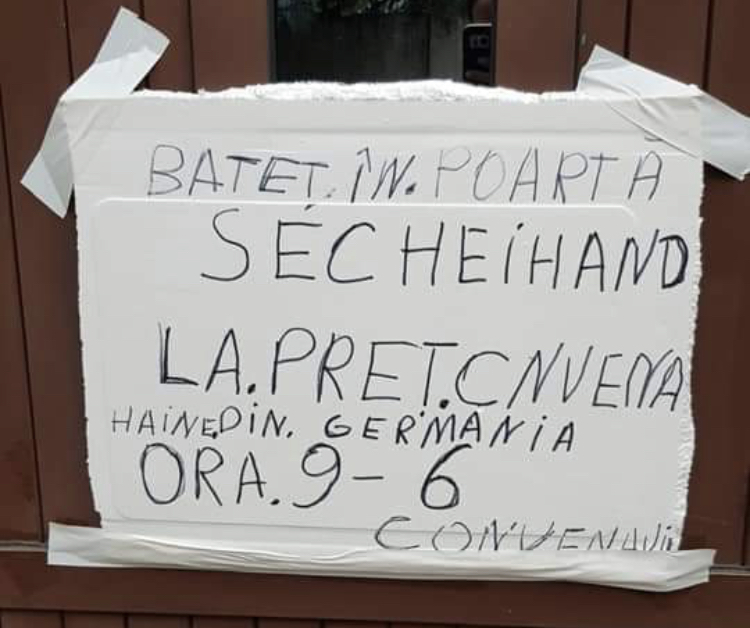 BATEȚ. ÎN. POARTĂ
SÉCHEIHAND
LA. PRET. CNVENA
HAINE. DIN. GERMANIA
ORA. 9 - 6